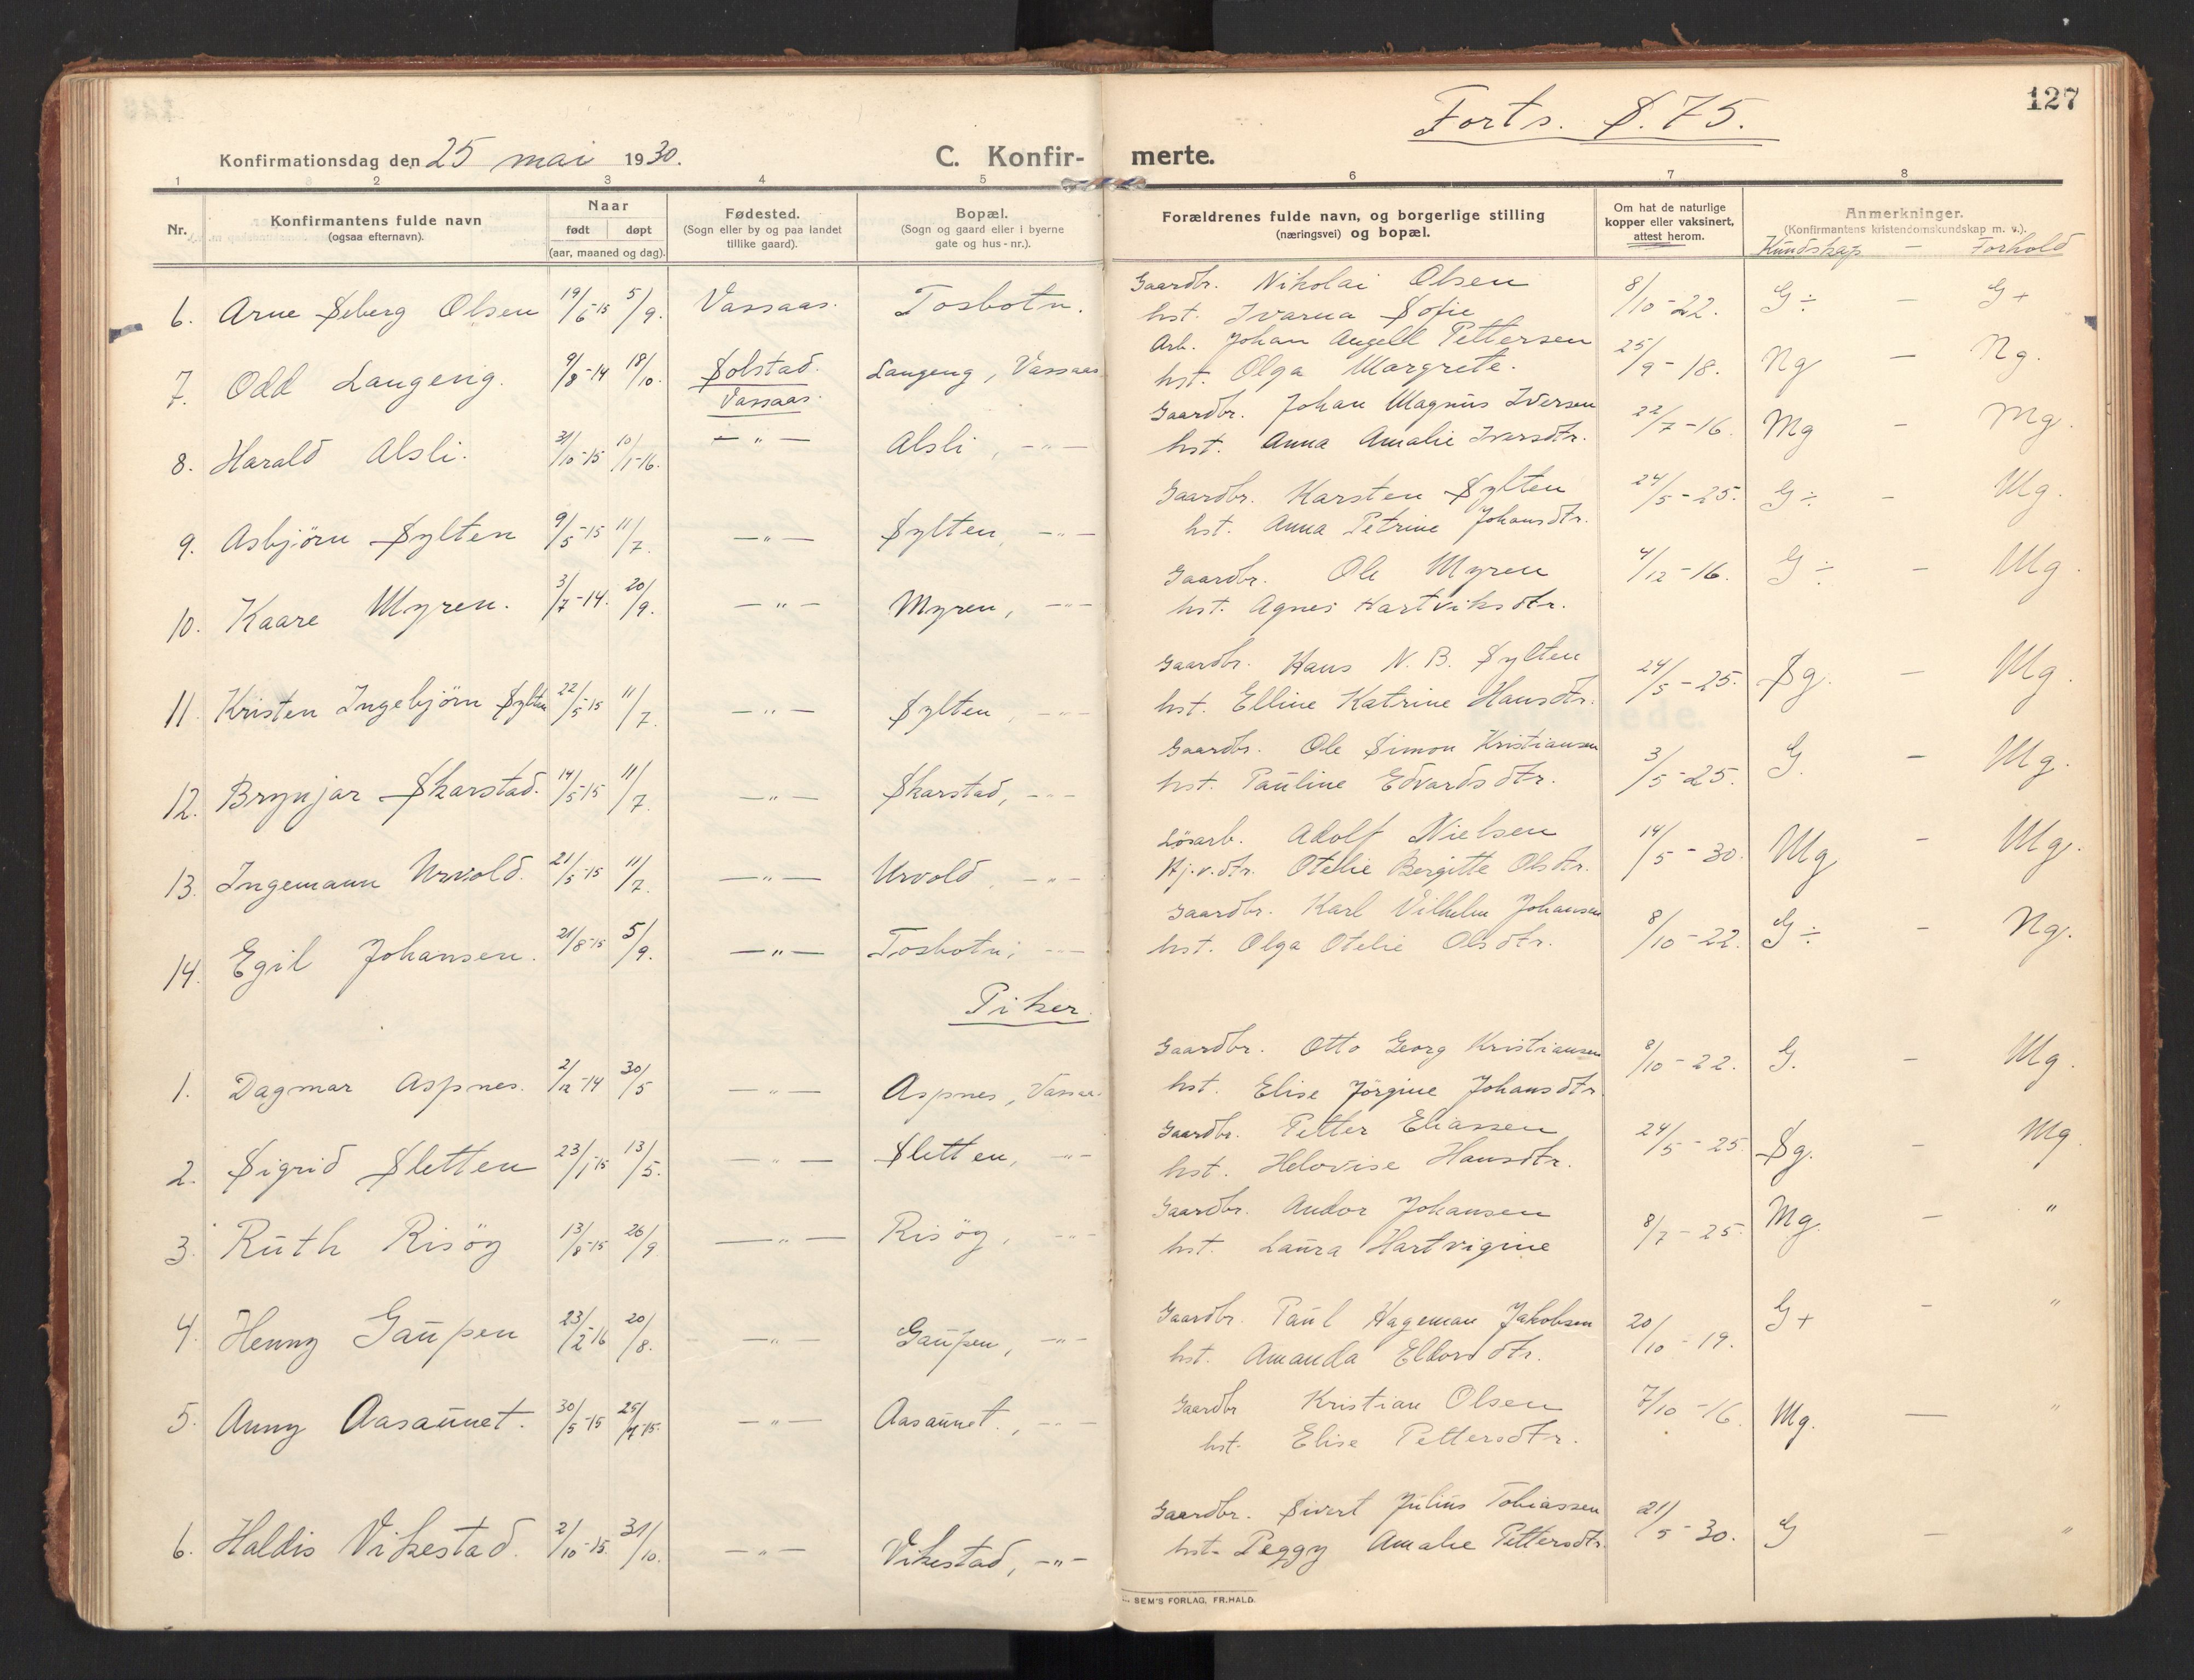 127
Forts. S. 75.
Konfirmationsdag den 25 mai 1930.
C. Konfir- merte.
1 2 3 4 5 6 7 8
Nr.
Konfirmantens fulde navn
(ogsaa efternavn).
Naar
født døpt
(aar, maaned og dag).
Fødested.
(Sogn eller by og paa landet
tillike gaard).
Bopæl.
(Sogn og gaard eller i byerne
gate og hus-nr.).
Forældrenes fulde navn, og borgerlige stilling
(næringsvei) og bopæl.
Om hat de naturlige
kopper eller vaksinert,
attest herom.
Anmerkninger.
(Konfirmantens kristendomskundskap m. v.).
Kundskap — Forhold
6. Arne Seberg Olsen 19/6-15 5/9. Vassaas. Tosbotn. Gaardbr. Nikolai Olsen 8/10-22. G÷ — G+
hst. Ivarna Sofie
7. Odd Langeng. 9/8-14 18/10. Solstad. Langeng, Vassaas Arb. Johan Angell Pettersen 25/9-18. Ng — Ng.
Vassaas. hst. Olga Margrete.
8. Harald Alsli. 31/10-15 10/1-16. —"— Alsli, —"— Gaardbr. Johan Magnus Iversen 22/7-16. Mg — Mg.
hst. Anna Amalie Iversdtr.
9. Asbjörn Sylten 9/5-15 11/7. —"— Sylten, —"— Gaardbr. Karsten Sylten 24/5-25. G÷ — Mg.
hst. Anna Petrine Johansdtr.
10. Kaare Myren. 3/7-14. 20/9. —"— Myren, —"— Gaardbr. Ole Myren 4/12-16. G÷ — Mg.
hst. Agnes Hartviksdtr.
11. Kristen Ingebjörn Sylten 22/5-15 11/7. —"— Sylten, —"— Gaardbr. Hans N. B. Sylten 24/5-25. Sg. — Mg.
hst. Elline Katrine Hansdtr.
12. Brynjar Skarstad. 14/5-15 11/7. —"— Skarstad, —"— Gaardbr. Ole Simon Kristiansen 3/5-25. G. — Mg.
hst. Pauline Edvardsdtr.
13. Ingemann Urvold. 21/5-15 11/7. —"— Urvold, —"— Lösarb. Adolf Nielsen 14/5-30. Mg — Mg.
Hj.v.dtr. Otelie Bergitte Olsdtr.
14. Egil Johansen. 21/8-15 5/9. —"— Tosbotn, —"— Gaardbr. Karl Vilhelm Johansen 8/10-22. G÷ — Ng.
hst. Olga Otelie Olsdtr.
Piker.
1. Dagmar Aspnes. 2/12-14 30/5 —"— Aspnes, Vassaas Gaardbr. Otto Georg Kristiansen 8/10-22. G. — Mg.
hst. Elise Jörgine Johansdtr.
2. Sigrid Sletten 23/1-15 13/5. —"— Sletten, —"— Gaardbr. Petter Eliassen 24/5-25 Sg. — Mg.
hst. Helovise Hansdtr.
3. Ruth Risöy 13/8-15 26/9. —"— Risöy, —"— Gaardbr. Andor Johansen 8/7-25. Mg. — "
hst. Laura Hartvigine
4. Henny Gaupen 23/2-16 20/8. —"— Gaupen, —"— Gaardbr. Paul Hageman Jakobsen 20/10-19. G+ — "
hst. Amanda Eldorsdtr.
5. Anny Aasaunet. 30/5-15 25/7-15. —"— Aasaunet., —"— Gaardbr Kristian Olsen 7/10-16. Mg. — "
hst. Elise Pettersdtr.
6. Haldis Vikestad. 2/10-15. 31/10. —"— Vikestad, —"— Gaardbr. Sivert Julius Tobiassen 21/5-30. G — "
hst. Peggy Amalie Pettersdtr.
SEM'S FORLAG, FR.HALD.